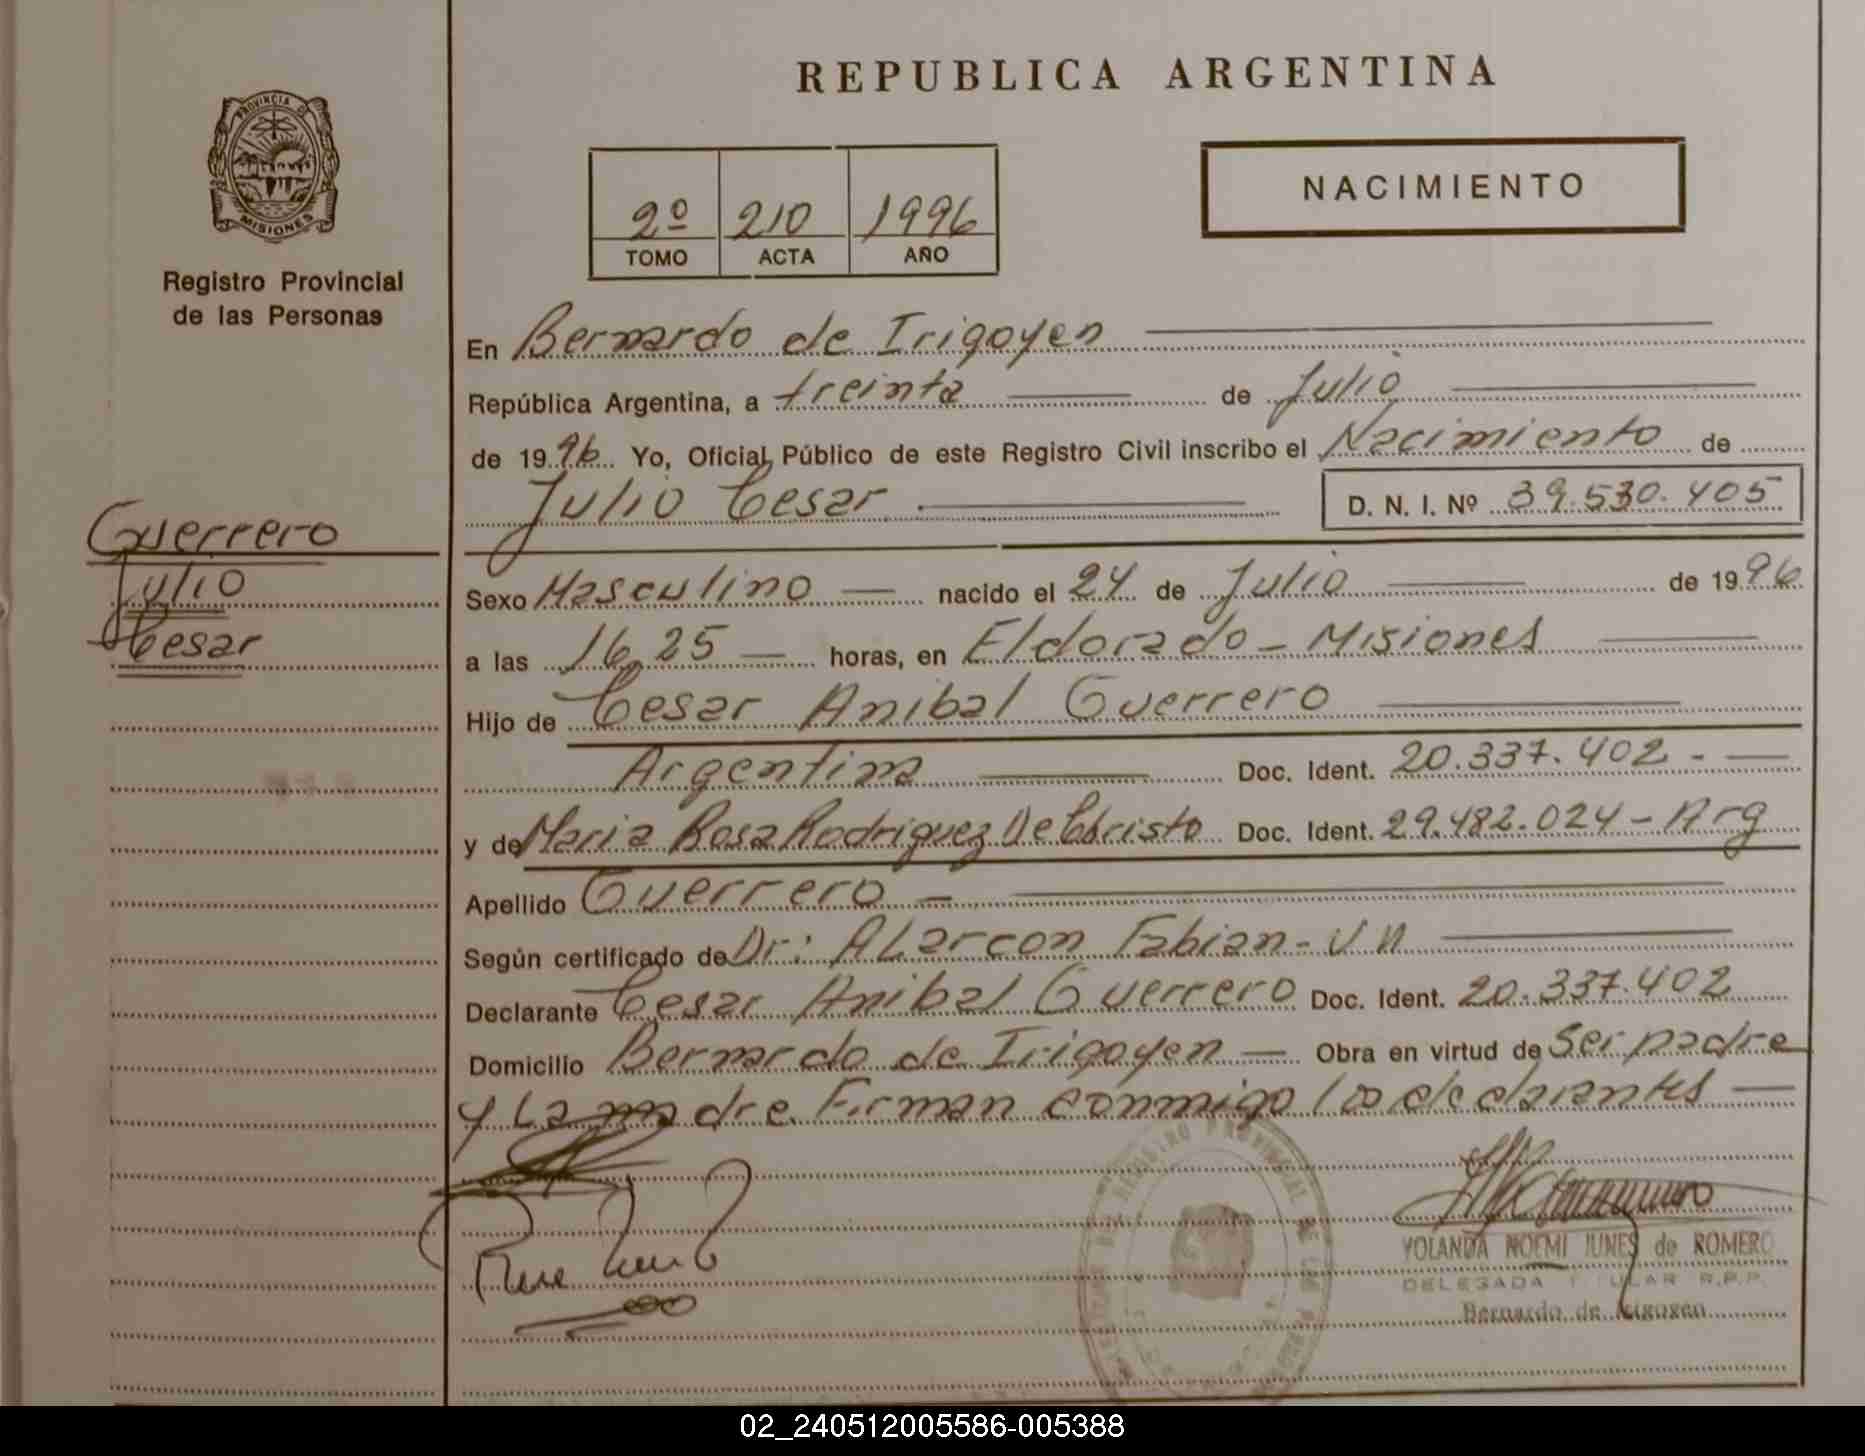 REPUBLICA ARGENTINA
PROVINCIA D
MISIONES
Registro Provincial
de las Personas
NACIMIENTO
2º 210 1996
TOMO ACTA AÑO
En Bernardo de Irigoyen
República Argentina, a treinta de Julio
de 1996 Yo, Oficial Público de este Registro Civil inscribo el Nacimiento de
Julio Cesar D. N. I. Nº 39.530.405
Guerrero
Julio
Cesar
Sexo Masculino nacido el 24 de Julio de 1996
a las 16,25 horas, en Eldorado - Misiones
Hijo de Cesar Anibal Guerrero
Argentina Doc. Ident. 20.337.402 -
y de Maria Rosa Rodriguez De Christo Doc. Ident. 29.482.024 - Arg
Apellido Guerrero -
Según certificado de Dr: ALarcon Fabian -
Declarante Cesar Anibal Guerrero Doc. Ident. 20.337.402
Domicilio Bernardo de Irigoyen Obra en virtud de Ser padre
y La madre. Firman conmigo los declarantes
REGISTRO PROVINCIAL DE LAS PERSONAS
YOLANDA NOEMI JUNES de ROMERO
DELEGADA TITULAR R.P.P.
Bernardo de Irigoyen
02_240512005586-005388